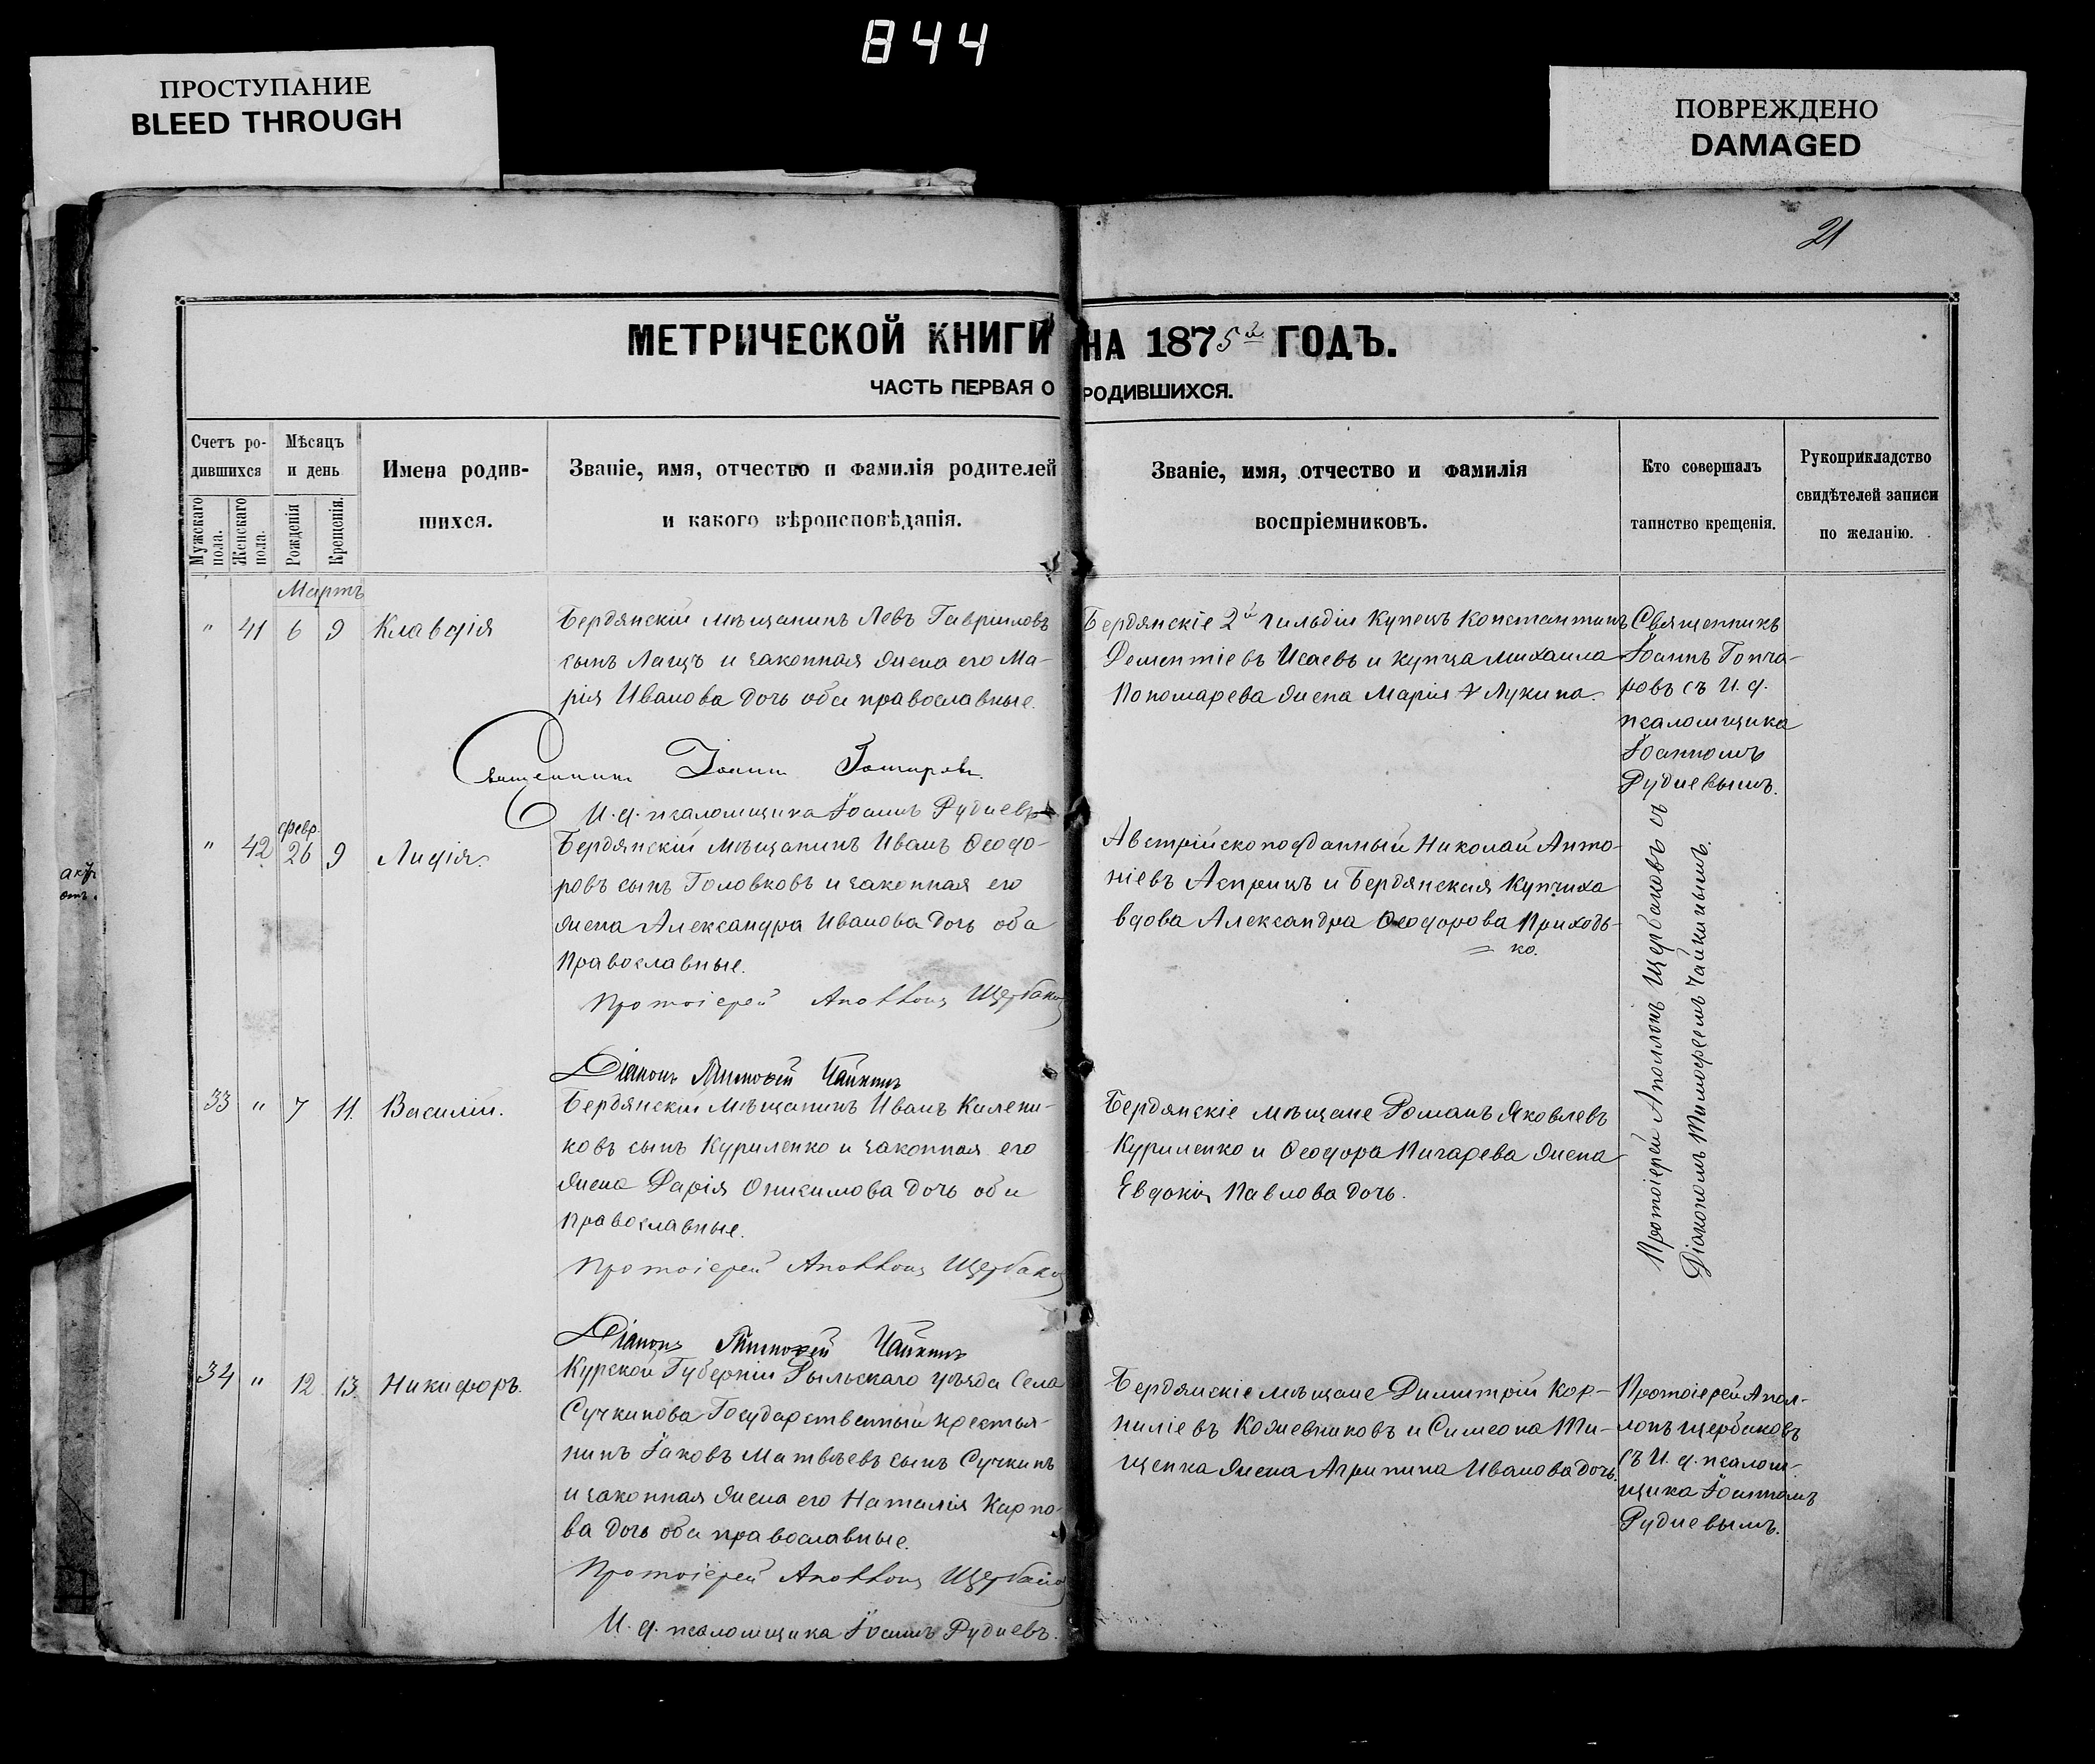 844
ПРОСТУПАНИЕ
BLEED THROUGH
ПОВРЕЖДЕНО
DAMAGED
21
МЕТРИЧЕСКОЙ КНИГИ НА 1875й ГОДЪ.
ЧАСТЬ ПЕРВАЯ О РОДИВШИХСЯ.
Счетъ ро-
дившихся
Мужскаго пола.
Женскаго пола.
Мѣсяцъ
и день
Рожденія
Крещенія.
Имена родив-
шихся.
Званіе, имя, отчество и фамилія родителей
и какого вѣроисповѣданія.
Званіе, имя, отчество и фамилія
воспріемниковъ.
Кто совершалъ
таинство крещенія.
Рукоприкладство
свидѣтелей записи
по желанію.
Мартъ
" 41 6 9 Клавдія
Бердянскій мѣщанинъ Левъ Гавриловъ
сынъ Лащъ и законная жена его Ма-
рія Иванова дочь оба православные.
Священникъ Іоаннъ Гончаровъ
И. д. псаломщика Іоаннъ Рудневъ
Бердянскіе 2й гильдіи Купецъ Константинъ
Дементіевъ Исаевъ и купца Михаила
Пономарева жена Марія Лукина.
Священникъ
Іоаннъ Гонча-
ровъ съ И. д.
псаломщика
Іоанномъ
Рудневымъ.
" 42 февр. 26 9 Лидія.
Бердянскій мѣщанинъ Иванъ Ѳеодо-
ровъ сынъ Головковъ и законная его
жена Александра Иванова дочь оба
Православные.
Протоіерей Аполлонъ Щербаков
Діаконъ Тимофей Чайкинъ
Австрійскоподданный Николай Анто-
ніевъ Асприцъ и Бердянская Купчиха
вдова Александра Ѳеодорова Приходь-
ко.
Протоіерей Аполлонъ Щербаковъ съ
Діакономъ Тимофеемъ Чайкинымъ.
33 " 7 11. Василій.
Бердянскій Мѣщанинъ Иванъ Калени-
ковъ сынъ Куриленко и законная его
жена Дарія Онисимова дочь оба
православные.
Протоіерей Аполлонъ Щербаков
Діаконъ Тимофей Чайкинъ
Бердянскіе мѣщане Романъ Яковлевъ
Куриленко и Ѳеодора Пигарева жена
Евдокія Павлова дочь.
34 " 12 13. Никифоръ.
Курской Губерніи Рыльскаго уѣзда Села
Сучкинова Государственный крестья-
нинъ Іаковъ Матвѣевъ сынъ Сучкинъ
и законная жена его Наталія Карпо-
ва дочь оба православные.
Протоіерей Аполлонъ Щербаков
И. д. псаломщика Іоаннъ Рудневъ.
Бердянскіе мѣщане Димитрій Кор-
ниліевъ Кожевниковъ и Симеона Ти-
щенка жена Агрипина Иванова дочь.
Протоіерей Апол-
лонъ Щербаковъ
съ И. д. псалом-
щика Іоанномъ
Рудневымъ.